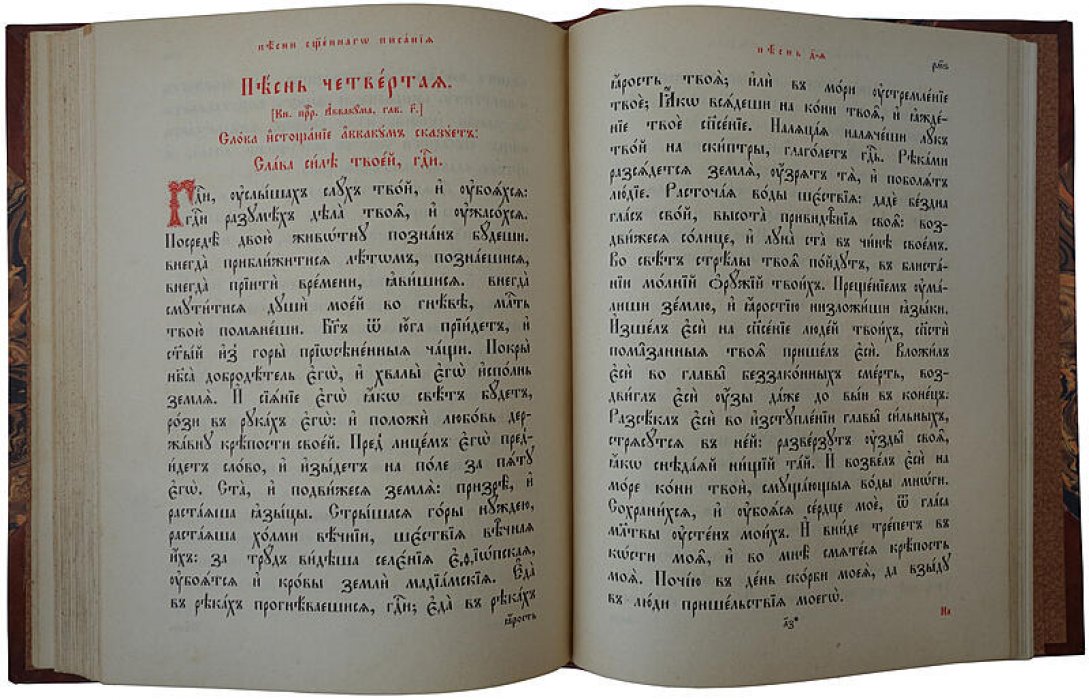 пѣ́сни сщ҃е́ннагѡ писа́нїѧ
Пѣ́снь четве́ртаѧ.
[Кн. прⷪ҇р. а҆ввакꙋ́ма, глав. г҃.]
Сло́ва и҆стоща́нїе а҆ввакꙋ́мъ сказꙋ́етъ:
Сла́ва си́лѣ твое́й, гдⷭ҇и.
Гдⷭ҇и, ᲂу҆слы́шахъ слꙋ́хъ тво́й, и҆ ᲂу҆боѧ́хсѧ:
гдⷭ҇и разꙋмѣ́хъ дѣла̀ твоѧ̑, и҆ ᲂу҆жасо́хсѧ.
Посредѣ̀ двою̀ живѡ́тнꙋ позна́нъ бꙋ́деши.
внегда̀ прибли́житисѧ лѣ́тѡмъ, позна́ешисѧ,
внегда̀ прїитѝ вре́мени, ꙗ҆ви́шисѧ. внегда̀
смꙋти́тисѧ дꙋшѝ мое́й во гнѣ́вѣ, млⷭ҇ть
твою̀ помѧне́ши. Бг҃ъ ѿ ю҆́га прїи́детъ, и҆
ст҃ы́й и҆з̾ горы̀ прїѡсѣне́нныѧ ча́щи. Покры̀
нб҃са̀ добродѣ́тель є҆гѡ̀, и҆ хвалы̀ є҆гѡ̀ и҆спо́лнь
землѧ̀. И҆ сїѧ́нїе є҆гѡ̀ ꙗ҆́кѡ свѣ́тъ бꙋ́детъ,
ро́зи въ рꙋка́хъ є҆гѡ̀: и҆ положѝ любо́вь дер-
жа́внꙋ крѣ́пости своеѧ̀. Пред̾ лице́мъ є҆гѡ̀ пред̾-
и́детъ сло́во, и҆ и҆зы́детъ на по́ле за пѧтꙋ̀
є҆гѡ̀. Ста̀, и҆ подви́жесѧ землѧ̀: призрѣ̀, и҆
раста́ѧша ꙗ҆зы́цы. Стры́шасѧ го́ры нꙋ́ждею,
раста́ѧша хо́лми вѣ́чнїи, ше́ствїѧ вѣ̑чнаѧ
и҆́хъ: за трꙋ́дъ ви́дѣша селє́нїѧ є҆ѳїѡ́пскаѧ,
ᲂу҆боѧ́тсѧ и҆ кро́вы землѝ мадїа́мскїѧ. Є҆да̀
въ рѣка́хъ прогнѣ́ваешисѧ, гдⷭ҇и; є҆да̀ въ рѣка́хъ
ꙗ҆́рость
пѣ́снь д҃-ѧ
рм҃ѕ
ꙗ҆́рость твоѧ̀; и҆лѝ въ мо́ри ᲂу҆стремле́нїе
твоѐ; Ꙗ҆́кѡ всѧ́деши на ко́ни твоѧ̑, и҆ ꙗ҆жде́-
нїе твоѐ спⷭ҇е́нїе. Налѧца́ѧ налѧче́ши лꙋ́къ
тво́й на ски́птры, глаго́летъ гдⷭ҇ь. Рѣка́ми
разсѧ́детсѧ землѧ̀, ᲂу҆́зрѧтъ тѧ̀, и҆ поболѧ́тъ
лю́дїе. Расточа́ѧ во́ды ше́ствїѧ: дадѐ бе́здна
гла́съ сво́й, высота̀ привидѣ̑нїѧ своѧ̑: воз-
дви́жесѧ со́лнце, и҆ лꙋна̀ ста̀ въ чи́нѣ свое́мъ.
Во свѣ́тъ стрѣ́лы твоѧ̑ по́йдꙋтъ, въ блиста́-
нїи мо́лнїй ѻ҆рꙋ́жїй твои́хъ. Преще́нїемъ ᲂу҆ма́-
лиши зе́млю, и҆ ꙗ҆́ростїю низложи́ши ꙗ҆зы́ки.
И҆зше́лъ є҆сѝ на спⷭ҇е́нїе люде́й твои́хъ, спⷭ҇тѝ
пома́занныѧ твоѧ̑ прише́лъ є҆сѝ. Вложи́лъ
є҆сѝ во главы̑ беззако́нныхъ сме́рть, воз-
дви́глъ є҆сѝ ᲂу҆́зы да́же до вы́и въ коне́цъ.
Разсѣ́клъ є҆сѝ во и҆зстꙋпле́нїи главы̑ си́льныхъ,
стрѧсꙋ́тсѧ въ не́й: разве́рзꙋтъ ᲂу҆зды̑ своѧ̑,
ꙗ҆́кѡ снѣда́ѧй ни́щїй та́й. И҆ возве́лъ є҆сѝ на
мо́ре ко́ни твоѧ̑, смꙋща́ющыѧ во́ды мнѡ́ги.
Сохрани́хсѧ, и҆ ᲂу҆боѧ́сѧ се́рдце моѐ, ѿ гла́са
мл҃твы ᲂу҆сте́нъ мои́хъ. И҆ вни́де тре́петъ въ
кѡ́сти моѧ̑, и҆ во мнѣ̀ смѧте́сѧ крѣ́пость
моѧ̀. Почі́ю въ де́нь ско́рби моеѧ̀, да взы́дꙋ
въ лю́ди прише́льствїѧ моегѡ̀.
На
л҃з*